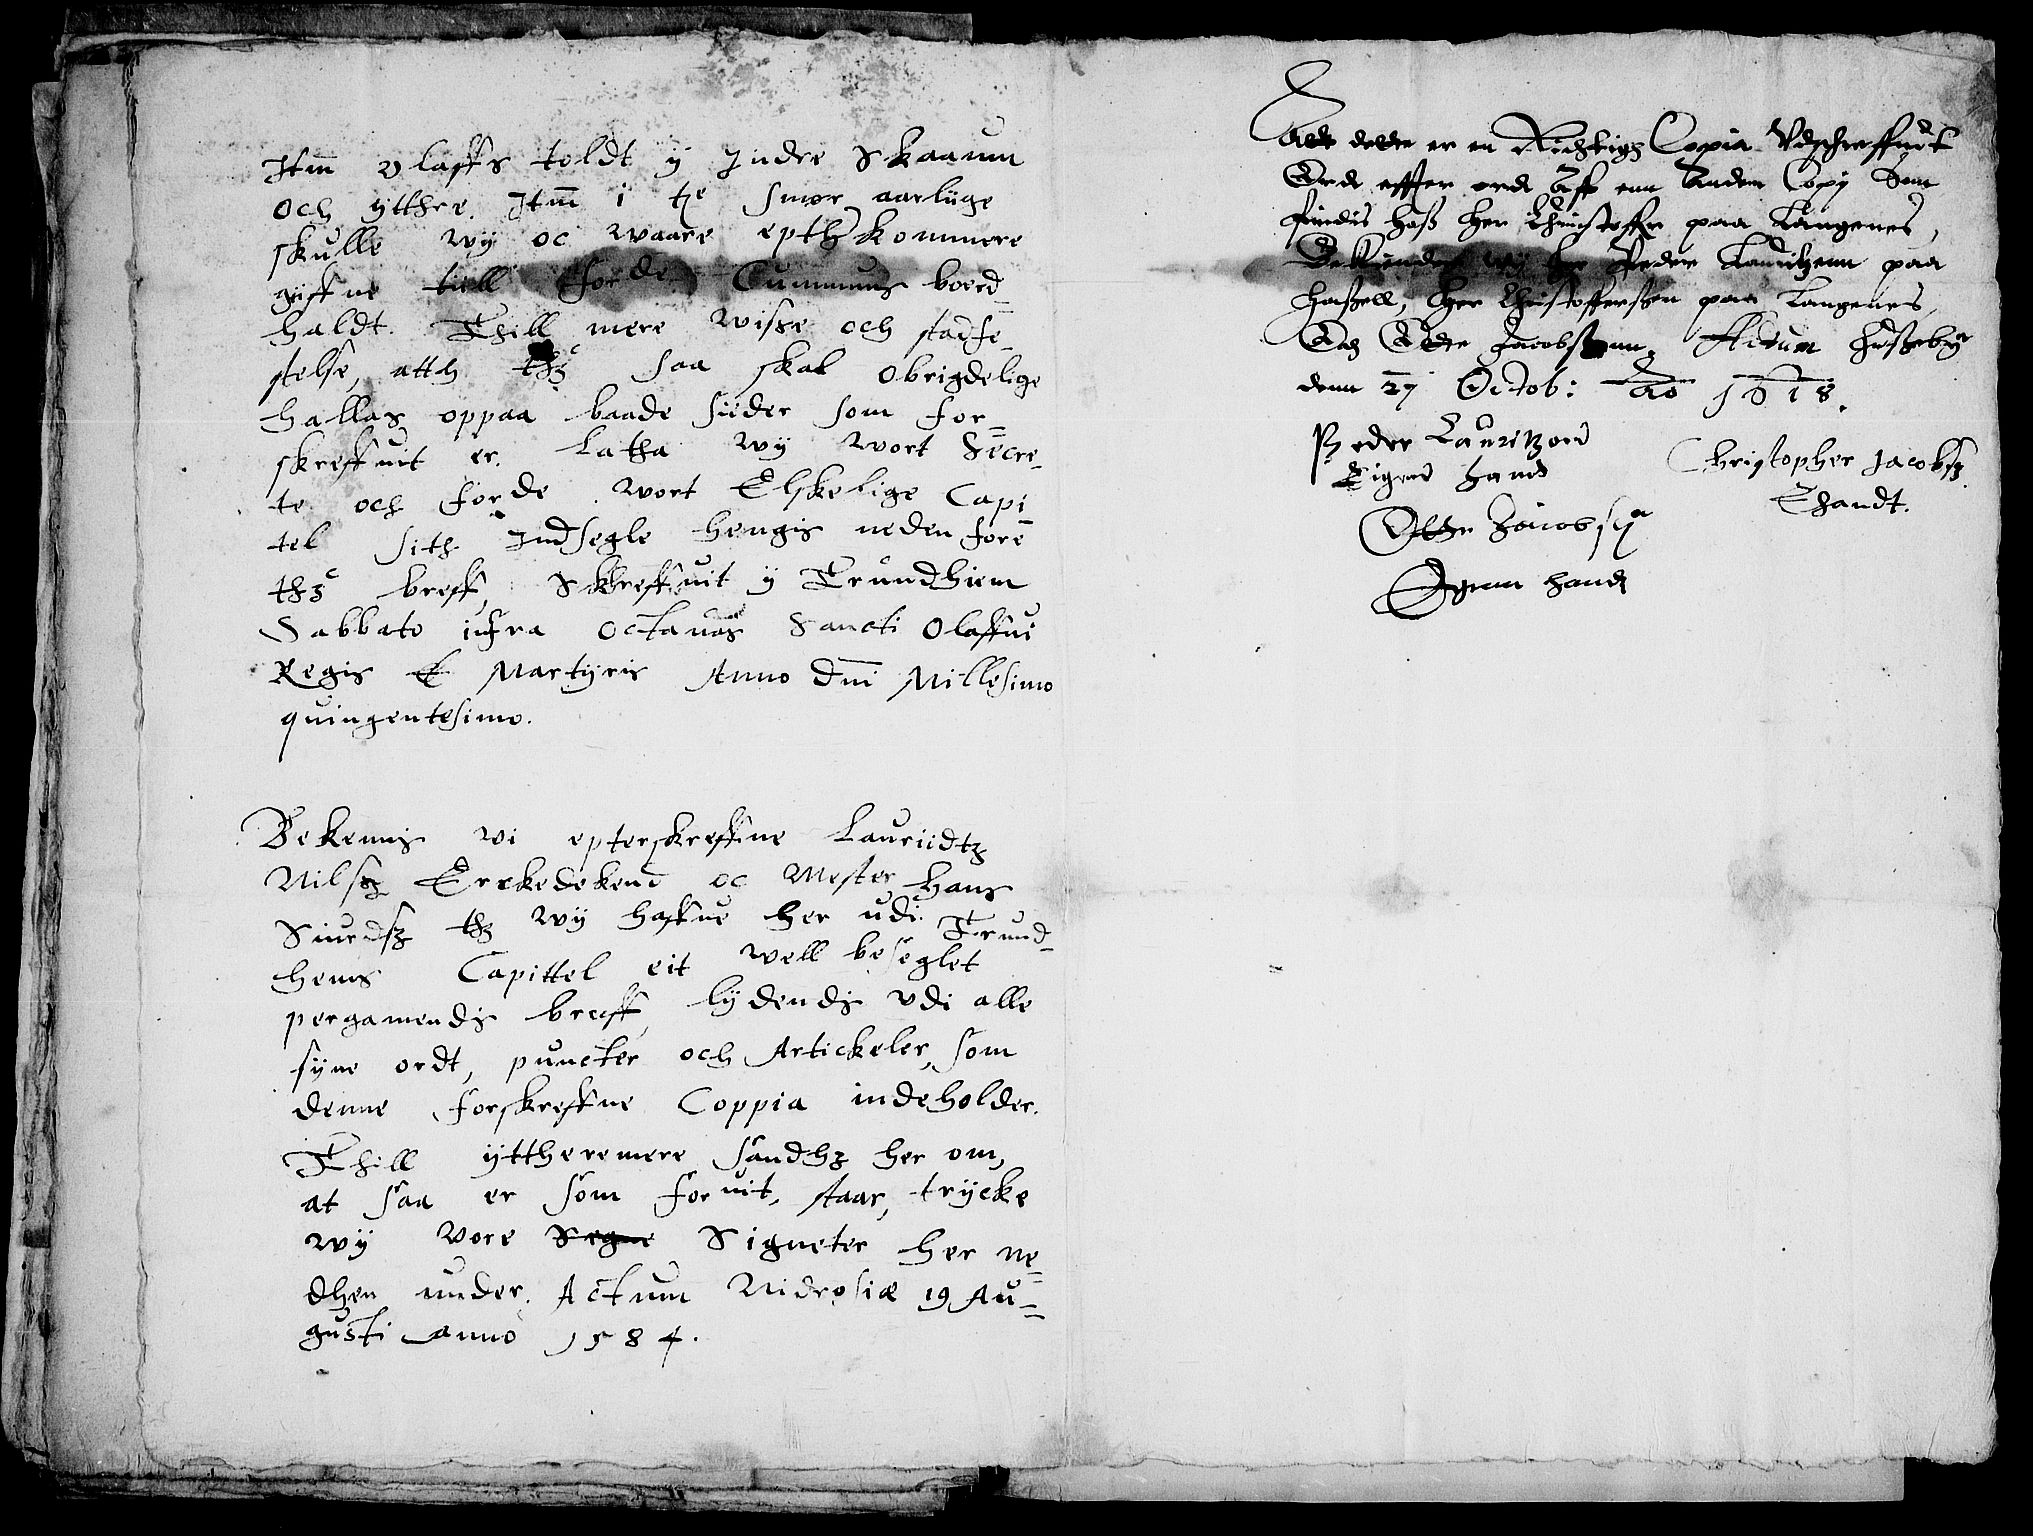 Itm Olaffs toldt ÿ Indre Skaarun
och ÿttre. Itm i tꝭ smør aarlüge
skulle wÿ oc waare epthꝫ kommere
giffne till forde Cummuns boerd=
haldt. Thill mere wisse och stadfe=
stelse, atth thꝫ saa skal obrigdelige
hallas oppaa baade sider som for=
skreffuit er. Latha wÿ wort Secre=
te och forde wort Elskelige Capi
tel sith Indsegle hengis neden fore
thꝫ breff, Skreffuit ÿ Trundhiem
Sabbato infra octauas Sancti Olaffui
Regis & Martÿris Anno dni Millesimo
quingentesimo.
Bekennis wi epterskreffne Lauriidtz
Nilsꝫ Erckedekend oc Mester Hans
Siurdsꝫ thꝫ wÿ haffue her udi Trund=
hems Capittel eit well beseglet
pergamendis breff, lÿdendis vdi alle
sÿne ordt, puncter och Artickeler, som
denne forskreffne Coppia indeholder.
Thill ÿttheremere sandhꝫ her om,
at saa er som foruit, staar, trÿcke
wÿ vore Segne Signeter her ne=
dhen under. Actum Nidrosiæ 19 Au=
gusti anno 1584.
Att dette er en Richtig Copia Vdschreffuit
Ord effter ord Aff enn Anden Copÿ Som
findis hoß Her Christoffer paa Langenes,
Bekiender wÿ her Peder Lauritzenn paa
Haßell, Her Christofferßen paa Langenes,
Och Otte Jacobßenn, Actum
denn 27 Octob: Ao 1618.
Peder Lauritzøn
Eigen hand
Christopher Jacobsꝫ
Ehandt.
Otte Jacobsꝫn
Egenn handt